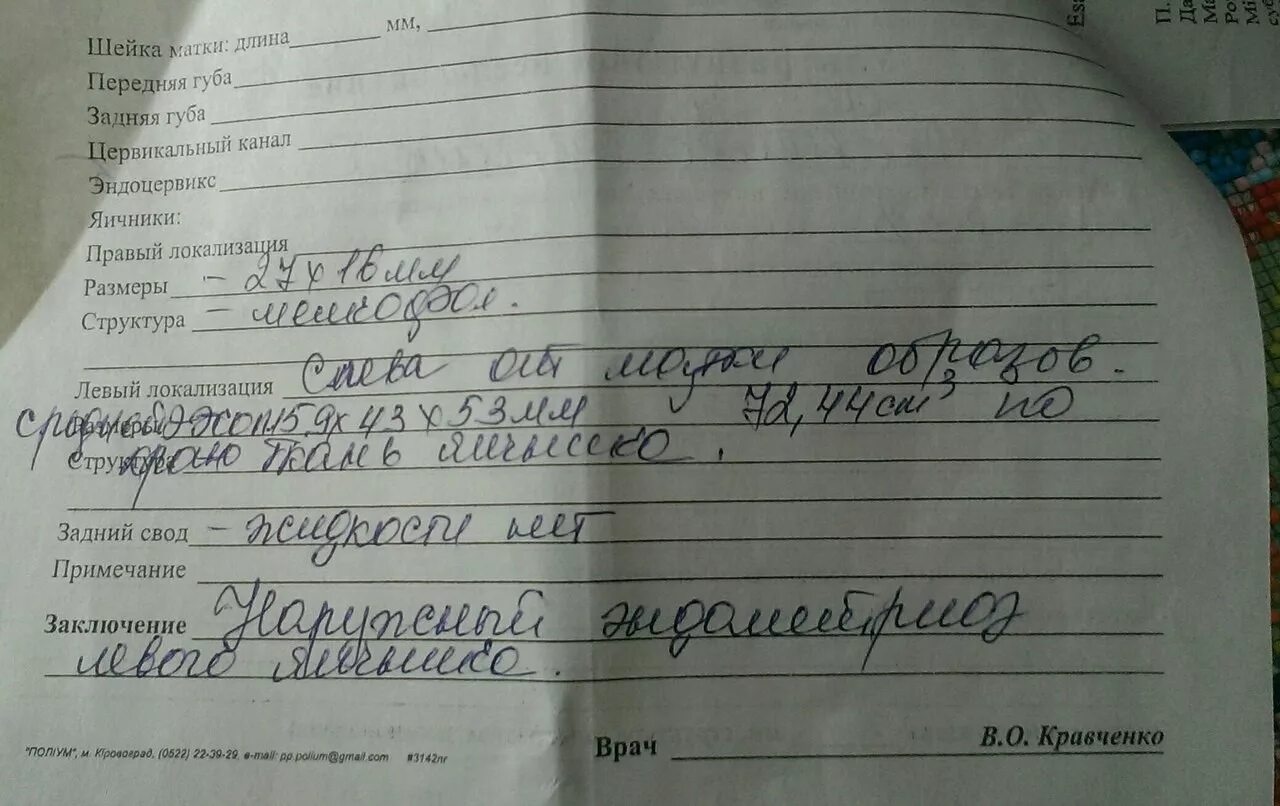 Шейка матки: длина мм,
Передняя губа
Задняя губа
Цервикальный канал
Эндоцервикс
Яичники:
Правый локализация
Размеры - 27 х 16 мм
Структура - мелкофол.
Левый локализация Слева от матки образов.
Размеры средней эхопл 59 х 43 х 53 мм V 72,44 см³ по
Структура краю ткань яичника.
Задний свод - жидкости нет
Примечание
Заключение Наружный эндометриоз
левого яичника.
Врач В.О. Кравченко
"ПОЛІУМ", м. Кіровоград, (0522) 22-39-29, e-mail: pp.polium@gmail.com #3142nr
Esa
П.
Да
Ро
Мі